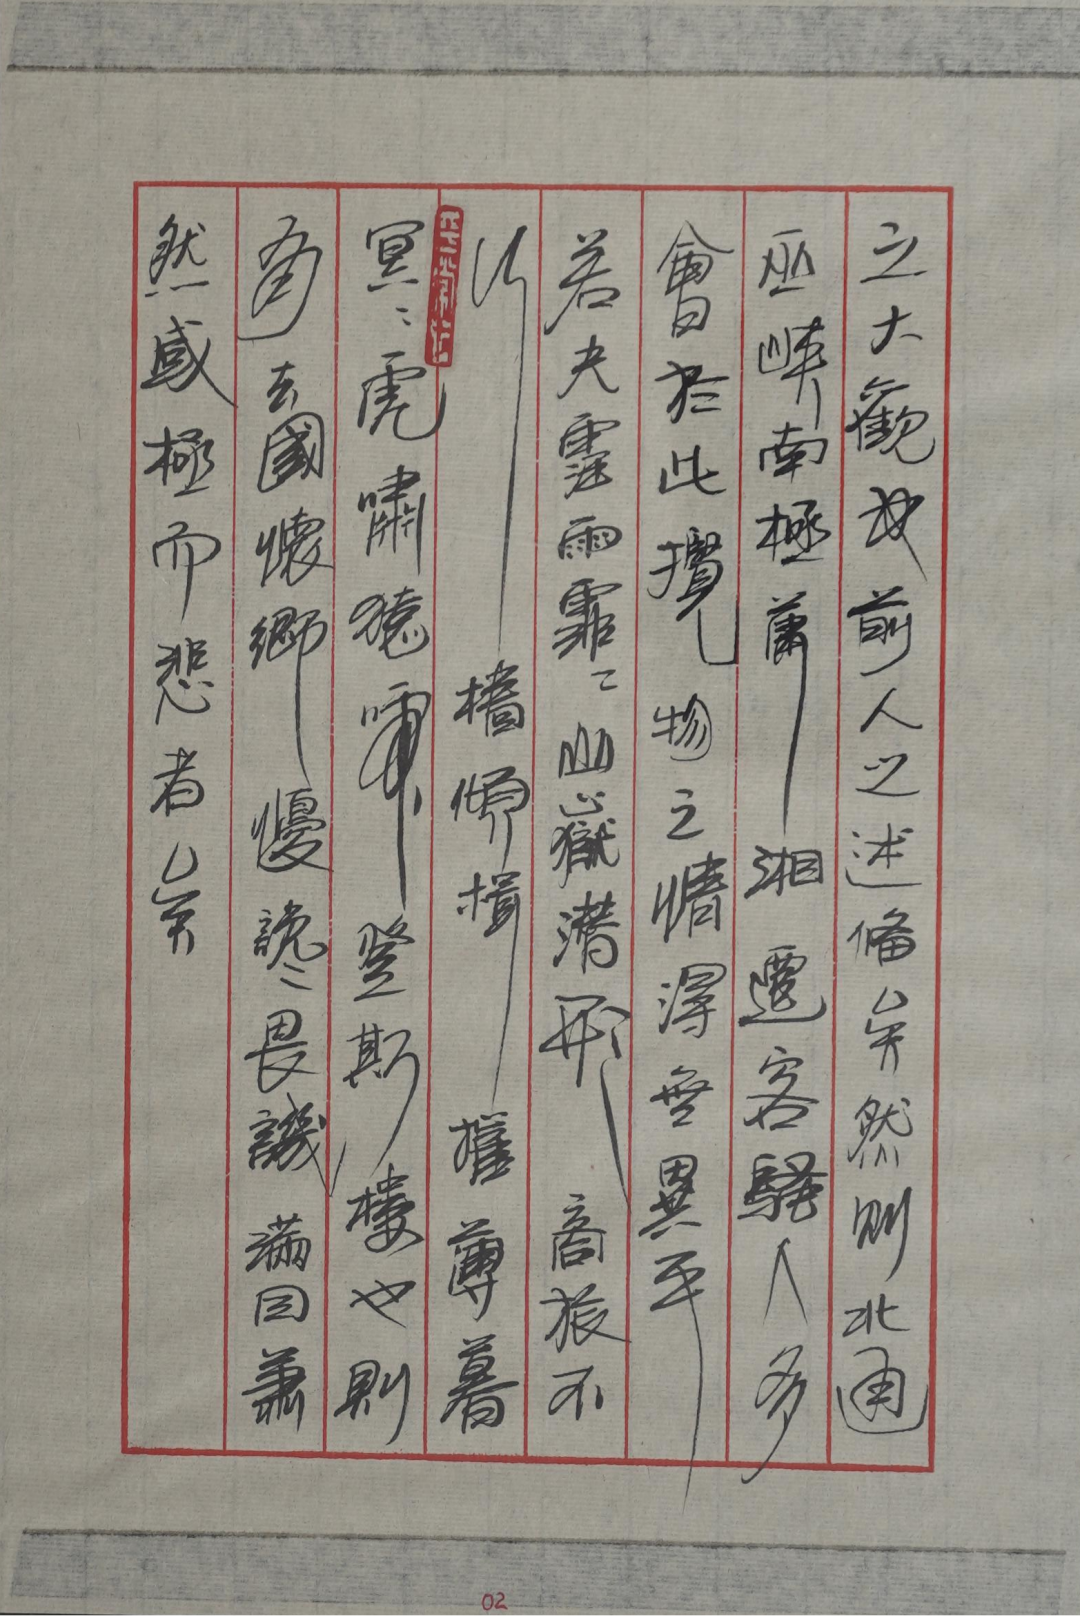 之大觀也前人之述備矣然則北通
巫峽南極蕭湘遷客騷人多
會於此攬物之情得無異乎
若夫霪雨霏〻山嶽潛形商旅不
行檣傾楫摧薄暮
冥〻虎嘯猿啼登斯樓也則
有去國懷鄉懮讒畏譏滿目蕭
然感極而悲者矣
02